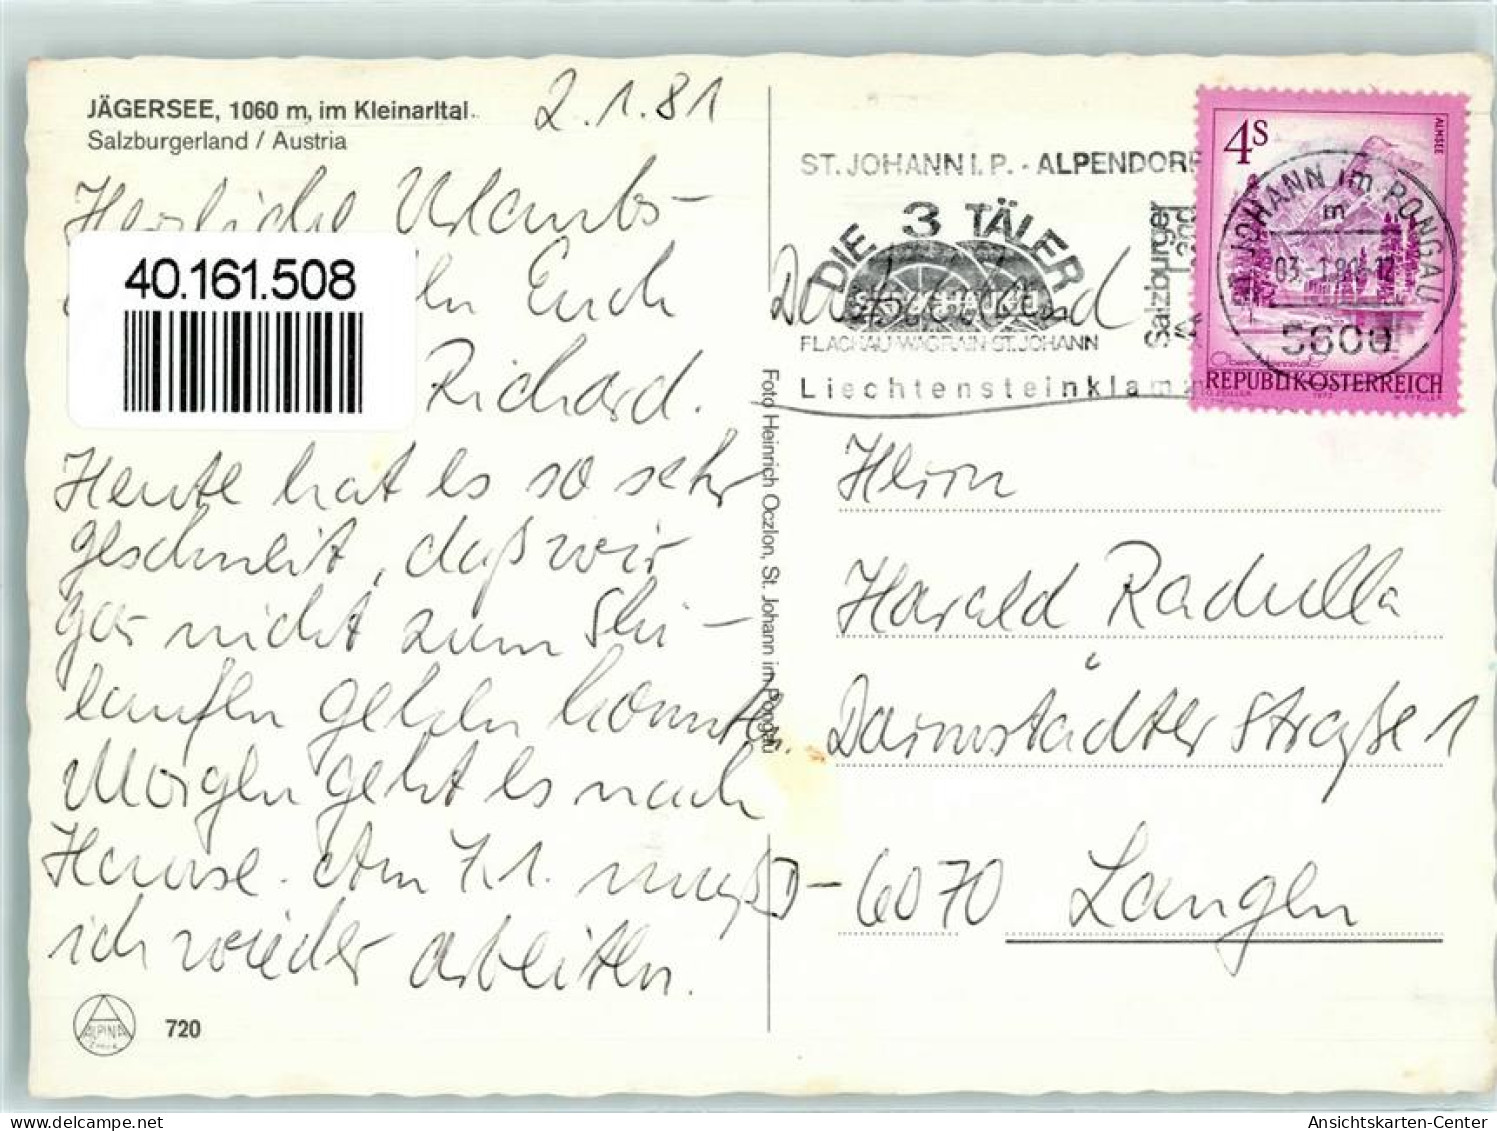 JÄGERSEE, 1060 m, im Kleinarltal.
Salzburgerland / Austria
2.1.81
Herzliche Urlaubs-
40.161.508
Euch
Richard.
Heute hat es so sehr
geschneit, daß wir
gar nicht zum Ski-
laufen gehen konnten.
Morgen geht es nach
Hause. Am 7.1. muß
ich wieder arbeiten.
ALPINA
720
Foto Heinrich Oczlon, St. Johann im Pongau
ST. JOHANN I. P. - ALPENDORF
DIE 3 TÄLER
FLACHAU WAGRAIN ST. JOHANN
Liechtensteinklamm
Salzburger
Land
Deutschland
4S
ALMSEE
REPUBLIK ÖSTERREICH
1973
ST. JOHANN im PONGAU
m
5600
Herrn
Harald Radulla
Darmstädter Straße 1
D-6070 Langen
Ansichtskarten-Center